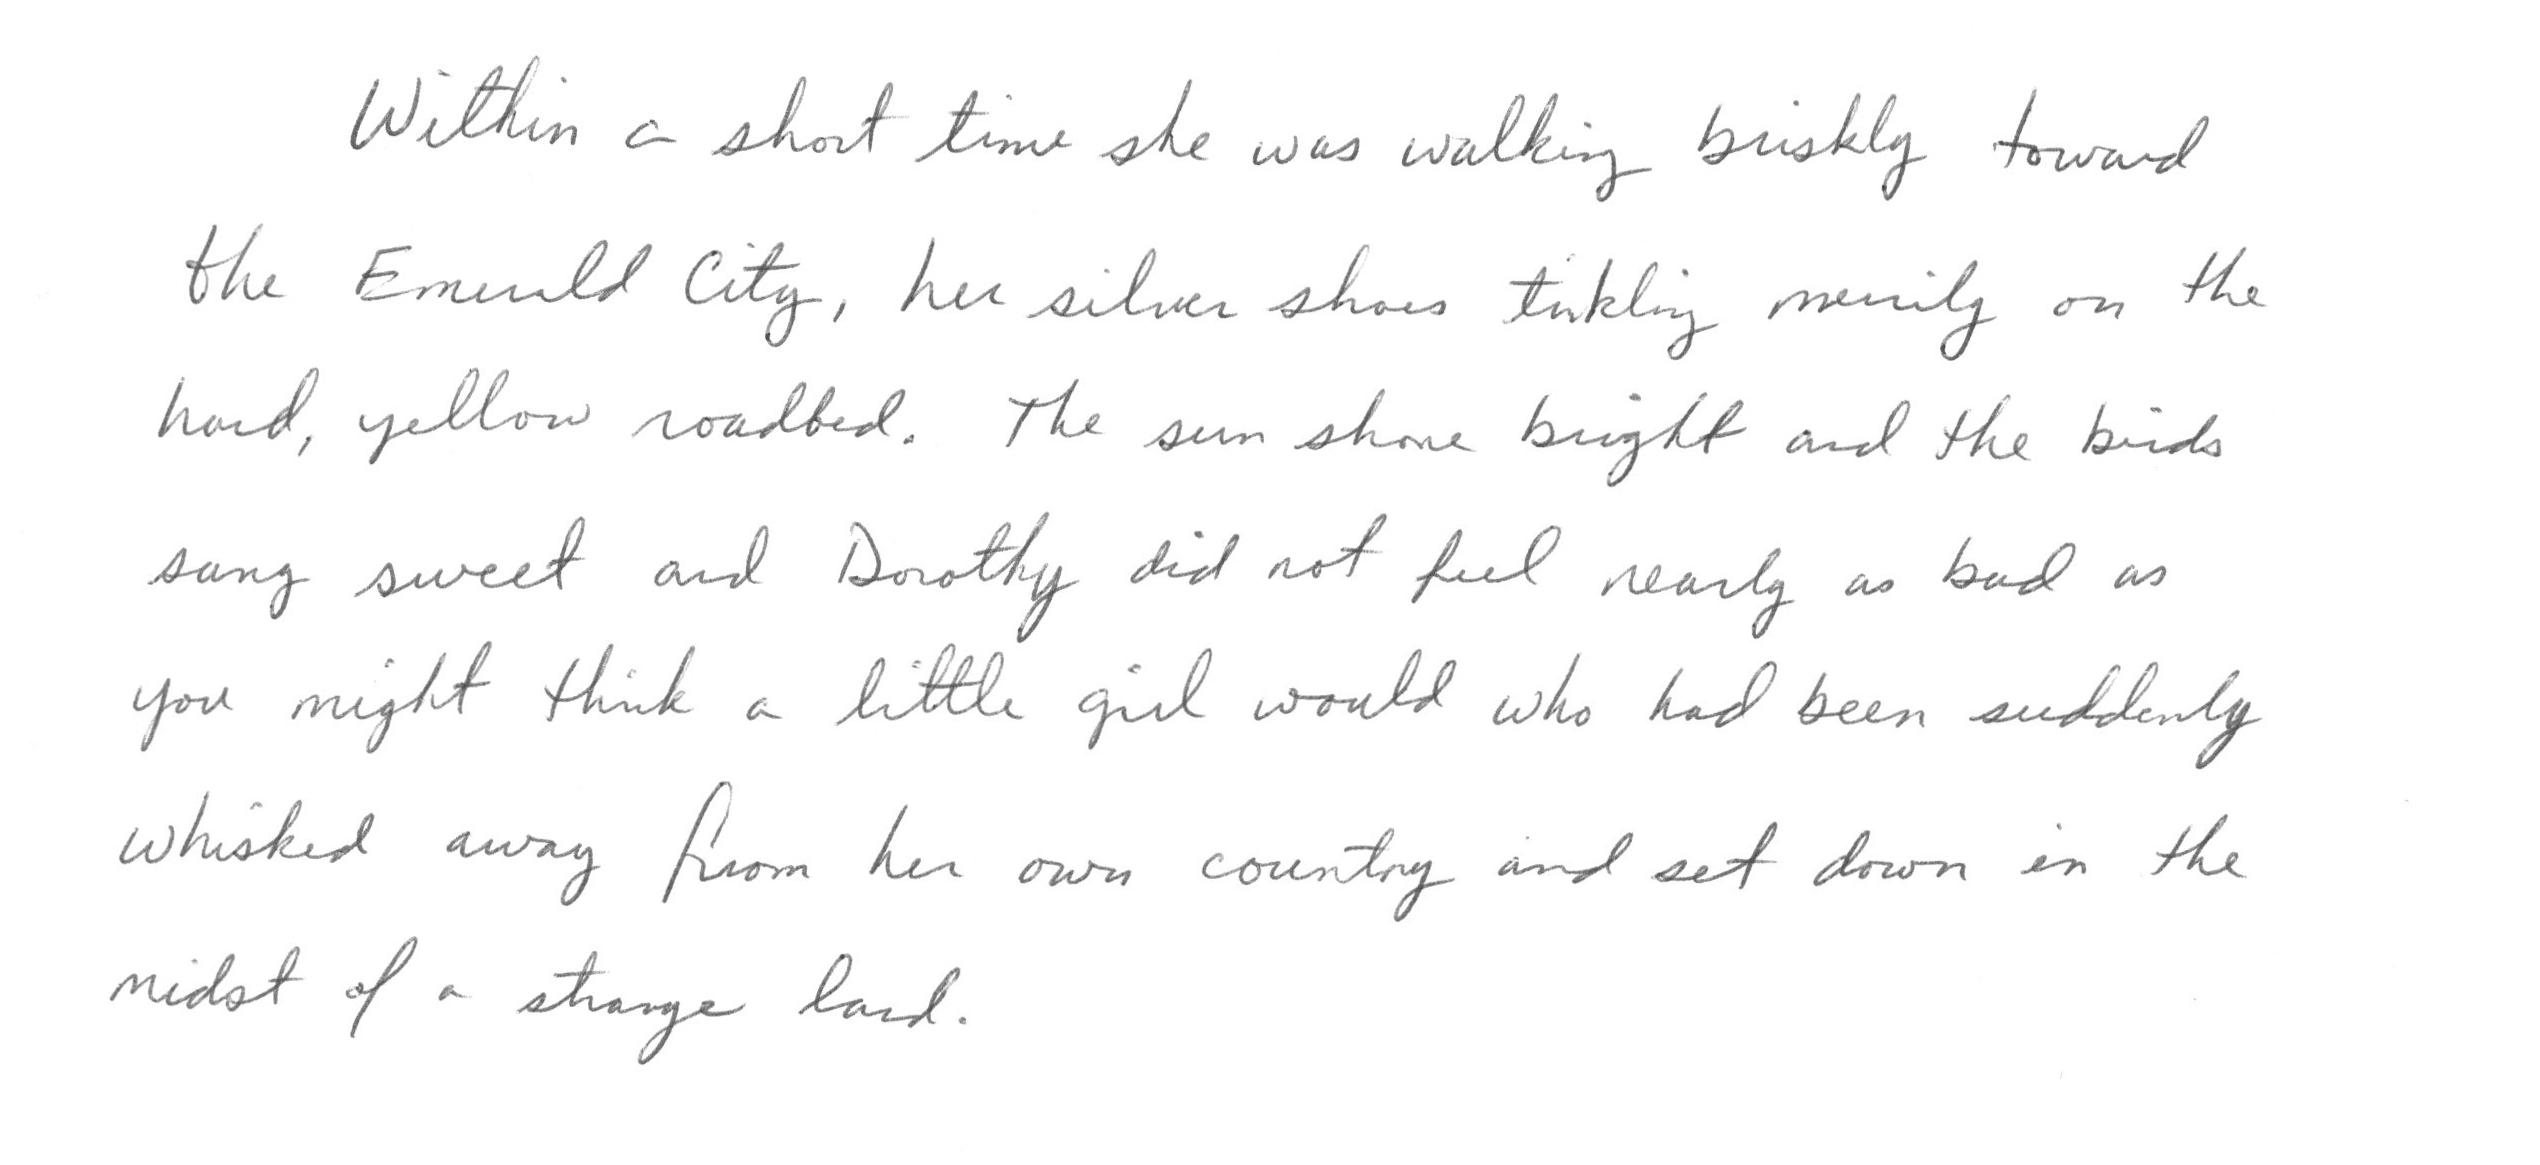 Within a short time she was walking briskly toward
the Emerald City, her silver shoes tinkling merrily on the
hard, yellow roadbed. The sun shone bright and the birds
sang sweet and Dorothy did not feel nearly as bad as
you might think a little girl would who had been suddenly
whisked away from her own country and set down in the
midst of a strange land.